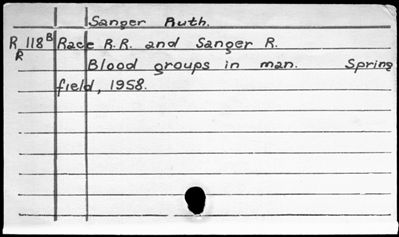 Sanger Ruth.
R 118B Race R.R. and Sanger R.
R Blood groups in man. Spring
field, 1958.